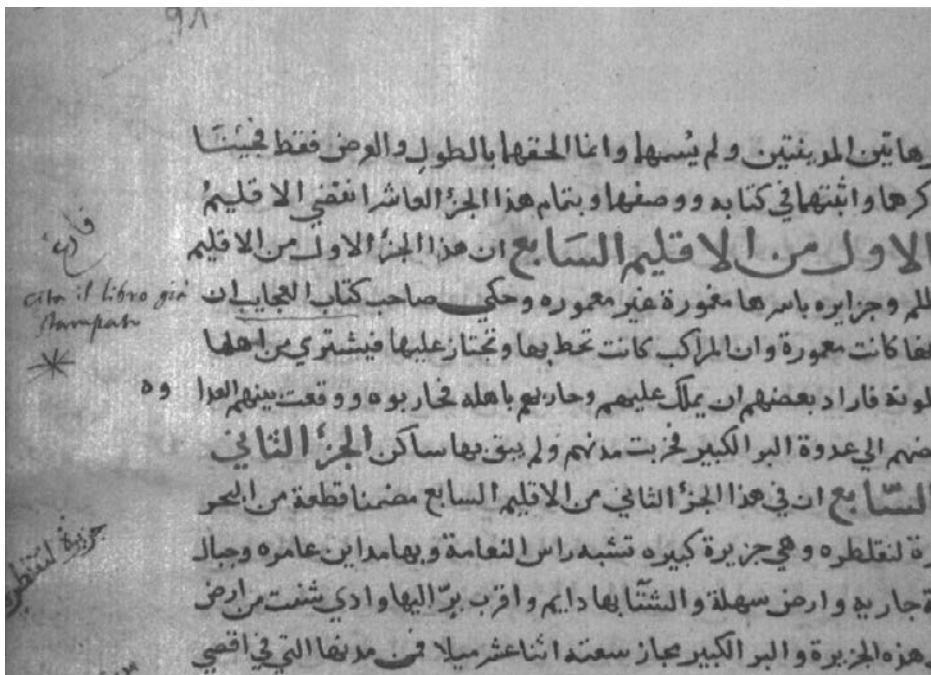 ٩٨
هاتين المدينتين ولم يُسمها وانما الحقها بالطول والعرض فقط فجيئنا
كرها واثبتها في كتابه ووصفها وبتمام هذا الجزء العاشر انقضي الاقليم
الاول من الاقليم السابع ان هذا الجزء الاول من الاقليم
ظلم وجزايره باسرها مغمورة غير معموره وحكي صاحب كتاب العجايب ان
كانت معمورة وان المراكب كانت تحط بها وتجتاز عليها فيشتري من اهلها
لونة فاراد بعضهم ان يملك عليهم وحاربهم باهله فحاربوه ووقعت بينهم العدا وه
ضهم الي عدوة البر الكبير فخربت مدنهم ولم يبق بها ساكن الجزء الثاني
السابع ان في هذا الجزء الثاني من الاقليم السابع مضمنا قطعة من البحر
رة لنقلطره وهي جزيرة كبيره تشبه راس النعامة وبها مداين عامره وجبال
ة جاريه وارض سهلة والشتا بها دايم واقرب برّ اليها وادي شنت من ارض
هذه الجزيرة والبر الكبير مجاز سعته اثنا عشر ميلا فمن مدنها التي في اقصي
cita il libro già
stampato
جزيرة لنقلطره